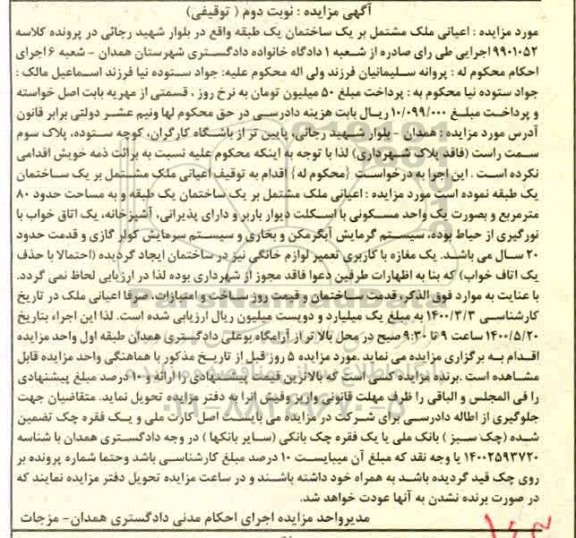 آگهی مزایده : نوبت دوم ( توقیفی)
مورد مزایده : اعیانی ملک مشتمل بر یک ساختمان یک طبقه واقع در بلوار شهید رجائی در پرونده کلاسه
۹۹۰۱۰۵۲ اجرایی طی رای صادره از شعبه ۱ دادگاه خانواده دادگستری شهرستان همدان - شعبه ۶ اجرای
احکام محکوم له : پروانه سلیمانیان فرزند ولی اله محکوم علیه: جواد ستوده نیا فرزند اسماعیل مالک :
جواد ستوده نیا محکوم به : پرداخت مبلغ ۵۰ میلیون تومان به نرخ روز ، قسمتی از مهریه بابت اصل خواسته
و پرداخت مبلغ ۱۰/۰۹۹/۰۰۰ ریال بابت هزینه دادرسی در حق محکوم لها ونیم عشر دولتی برابر قانون
آدرس مورد مزایده : همدان - بلوار شهید رجائی، پایین تر از باشگاه کارگران، کوچه ستوده، پلاک سوم
سمت راست (فاقد پلاک شهرداری) لذا با توجه به اینکه محکوم علیه نسبت به برائت ذمه خویش اقدامی
نکرده است . این اجرا به درخواست {محکوم له} اقدام به توقیف اعیانی ملک مشتمل بر یک ساختمان
یک طبقه نموده است مورد مزایده : اعیانی ملک مشتمل بر یک ساختمان یک طبقه و به مساحت حدود ۸۰
مترمربع و بصورت یک واحد مسکونی با اسکلت دیوار باربر و دارای پذیرانی، آشپزخانه، یک اتاق خواب با
نورگیری از حیاط بوده، سیستم گرمایش آبگرمکن و بخاری و سیستم سرمایش کولر گازی و قدمت حدود
۲۰ سال می باشد. یک مغازه با کاربری تعمیر لوازم خانگی نیز در ساختمان ایجاد گردیده (احتمالا با حذف
یک اتاف خواب) که بنا به اظهارات طرفین دعوا فاقد مجوز از شهرداری بوده لذا در ارزیابی لحاظ نمی گردد.
با عنایت به موارد فوق الذکر، قدمت ساختمان و قیمت روز ساخت و امتیازات، صرفا اعیانی ملک در تاریخ
کارشناسی ۱۴۰۰/۳/۳ به مبلغ یک میلیارد و دویست میلیون ریال ارزیابی شده است. لذا این اجراء بتاریخ
۱۴۰۰/۵/۲۰ ساعت ۹ تا ۹:۳۰ صبح در محل بالاتر از آرامگاه بوعلی دادگستری همدان طبقه اول واحد مزایده
اقدام به برگزاری مزایده می نماید .مورد مزایده ۵ روز قبل از تاریخ مذکور با هماهنگی واحد مزایده قابل
مشاهده است .برنده مزایده کسی است که بالاترین قیمت پیشنهادی را ارائه و ۱۰ درصد مبلغ پیشنهادی
را فی المجلس و الباقی را ظرف مهلت قانونی واریز وفیش انرا به دفتر مزایده تحویل نماید. متقاضیان جهت
جلوگیری از اطاله دادرسی برای شرکت در مزایده می بایست اصل کارت ملی و یک فقره چک تضمین
شده (چک سبز ) بانک ملی یا یک فقره چک بانکی (سایر بانکها ) در وجه دادگستری همدان با شناسه
۱۴۰۰۲۵۹۳۷۲۰ یا وجه نقد که مبلغ آن میبایست ۱۰ درصد مبلغ کارشناسی باشد وحتما شماره پرونده بر
روی چک قید گردیده باشد به همراه خود داشته باشند و در ساعت مزایده تحویل دفتر مزایده نمایند که
در صورت برنده نشدن به آنها عودت خواهد شد.
مدیر واحد مزایده اجرای احکام مدنی دادگستری همدان- مزجات